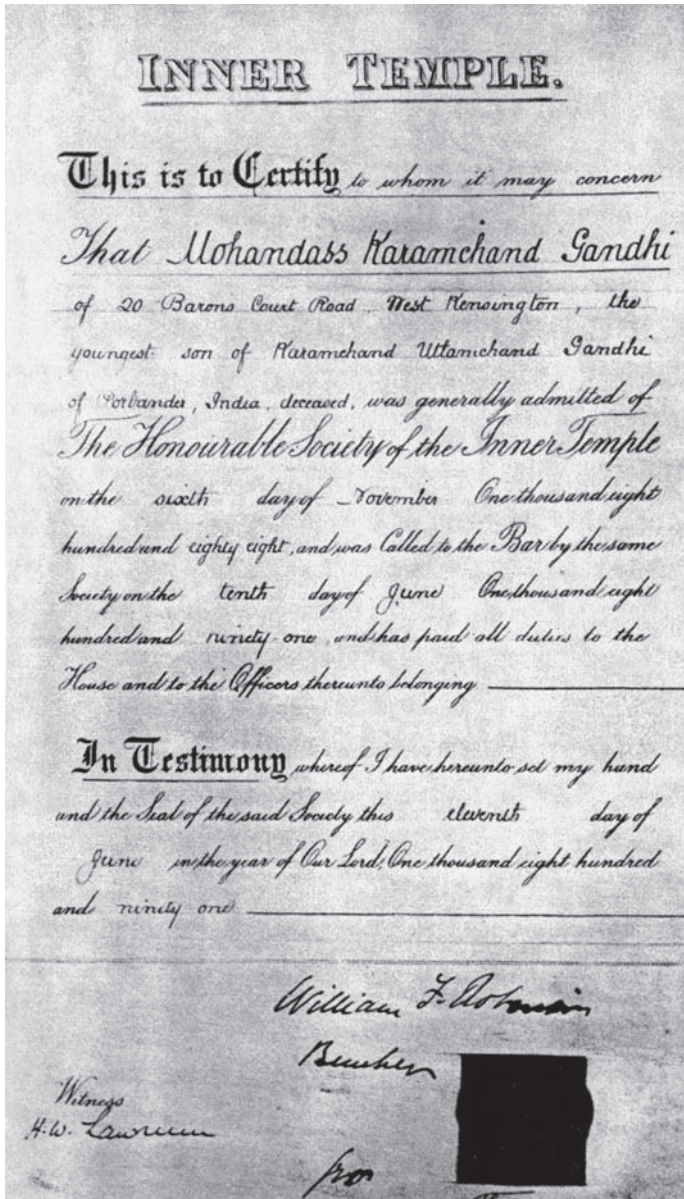 INNER TEMPLE.
This is to Certify to whom it may concern
That Mohandass Karamchand Gandhi
of 20 Barons Court Road, West Kensington, the
youngest son of Karamchand Uttamchand Gandhi
of Porbander, India, deceased, was generally admitted of
The Honourable Society of the Inner Temple
on the sixth day of November One thousand eight
hundred and eighty eight, and was Called to the Bar by the same
Society on the tenth day of June One thousand eight
hundred and ninety-one, and has paid all duties to the
House and to the Officers thereunto belonging
In Testimony whereof I have hereunto set my hand
and the Seal of the said Society this eleventh day of
June in the year of Our Lord, One thousand eight hundred
and ninety one
William F.
Bencher
Witness
H.W. Lawrence